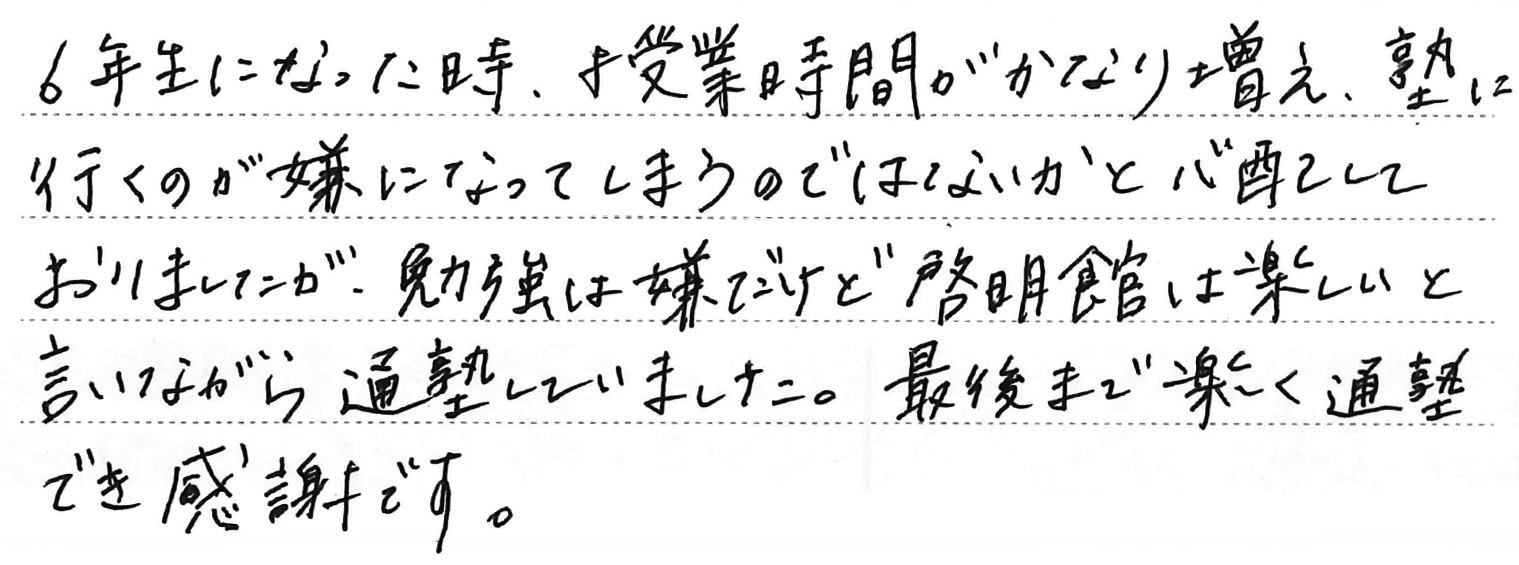 6年生になった時、授業時間がかなり増え、塾に
行くのが嫌になってしまうのではないかと心配して
おりましたが、勉強は嫌だけど啓明館は楽しいと
言いながら通塾していました。最後まで楽しく通塾
でき感謝です。